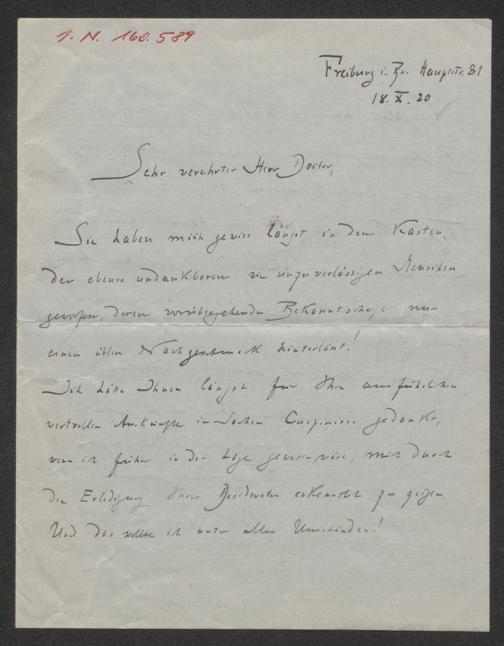 I. N. 160.589
Freiburg i. Br. Hauptstr. 81
18. X. 20
Sehr verehrter Herr Doctor,
Sie haben mich gewiss längst in den Kasten
der ebenso undankbaren wie unzuverlässigen Menschen
geworfen, deren vorübergehende Bekanntschaft nur
einen üblen Nachgeschmack hinterlässt!
Ich hätte Ihnen längst für Ihre ausführlichen
wertvollen Auskünfte in Sachen Cuspinians gedankt,
wenn ich früher in der Lage gewesen wäre, mich durch
die Erledigung Ihres Desideratums erkenntlich zu zeigen.
Und das wollte ich unter allen Umständen!